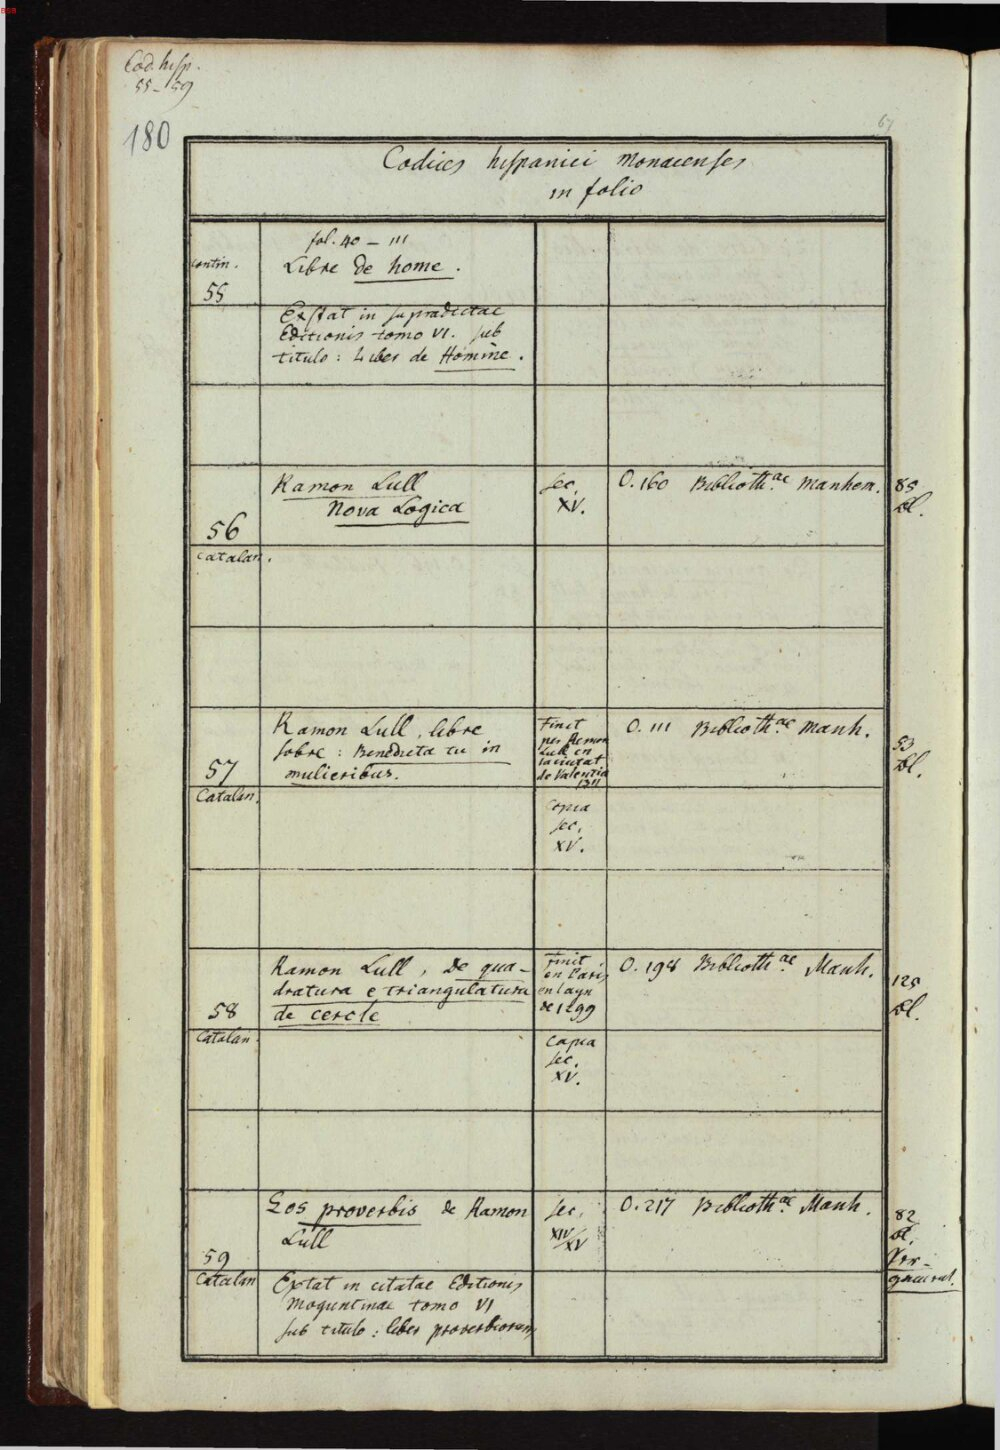 BSB
Cod. hisp.
55-59
180
67
Codices hispanici Monacenses
in folio
fol. 40 - 111
contin.
55
Libre de home.
Exstat in supradictae
Editionis tomo VI. sub
titulo: Liber de Homine.
56
Catalan.
Ramon Lull
Nova Logica
sec.
XV.
O. 160 Biblioth.ae Manhem.
85
Bl.
57
Catalan.
Ramon Lull, libre
sobre: Benedicta tu in
mulieribus.
Finit
per Remon
Lull en
la ciutat
de Valentia
1311
Copia
sec.
XV.
O. 111 Biblioth.ae Manh.
53
Bl.
58
Catalan.
Ramon Lull, De qua-
dratura e triangulatura
de cercle
Finit
en Paris
en l'ayn
de 1299
Copia
sec.
XV.
O. 198 Biblioth.ae Manh.
125
Bl.
59
Catalan
Los proverbis de Ramon
Lull
Extat in citatae Editionis
Moguntinae tomo VI
sub titulo: liber proverbiorum
sec.
XIV/XV
O. 217 Biblioth.ae Manh.
82
Bl.